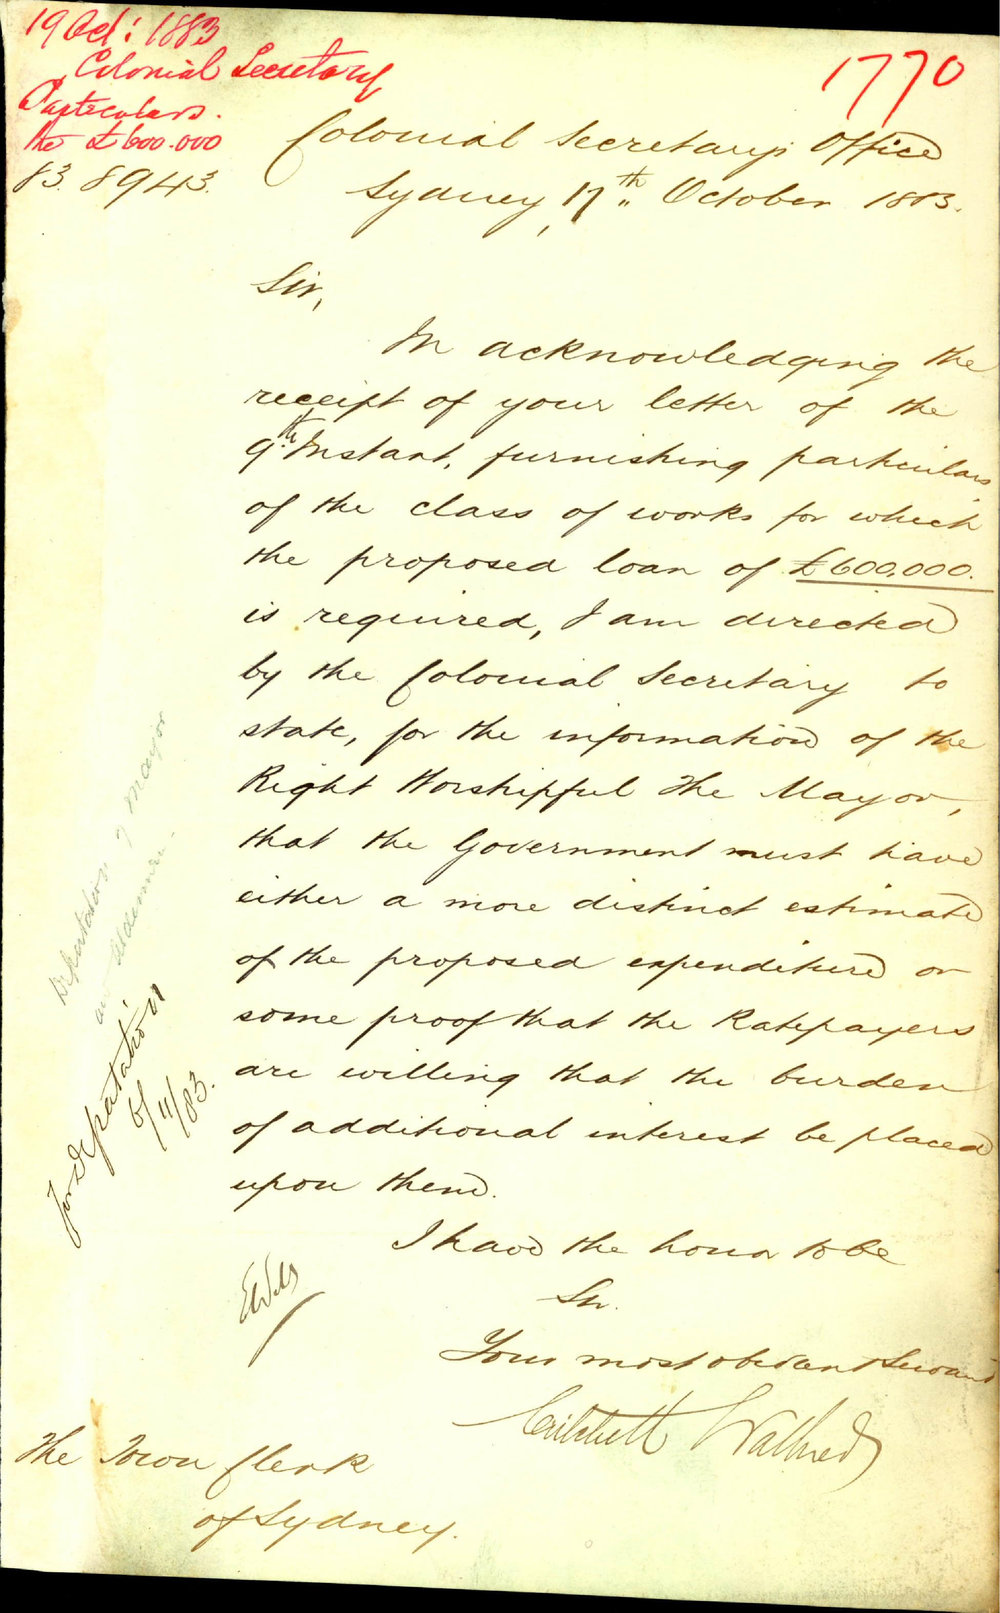 19 Oct: 1883
Colonial Secretary
Particulars.
the £600.000
83. 8943.
1770
Colonial Secretary's Office
Sydney, 17th October 1883.
Sir,
In acknowledging the
receipt of your letter of the
9th Instant, furnishing particulars
of the class of works for which
the proposed loan of £600,000.
is required, I am directed
by the Colonial Secretary to
state, for the information of the
Right Worshipful The Mayor,
that the Government must have
either a more distinct estimate
of the proposed expenditure or
some proof that the Ratepayers
are willing that the burden
of additional interest be placed
upon them.
I have the honor to be
Sir.
Your most obedient Servant
Critchett Walker
The Town Clerk
of Sydney.
Deputation of Mayor
and Aldermen.
For deputation
6/11/83.